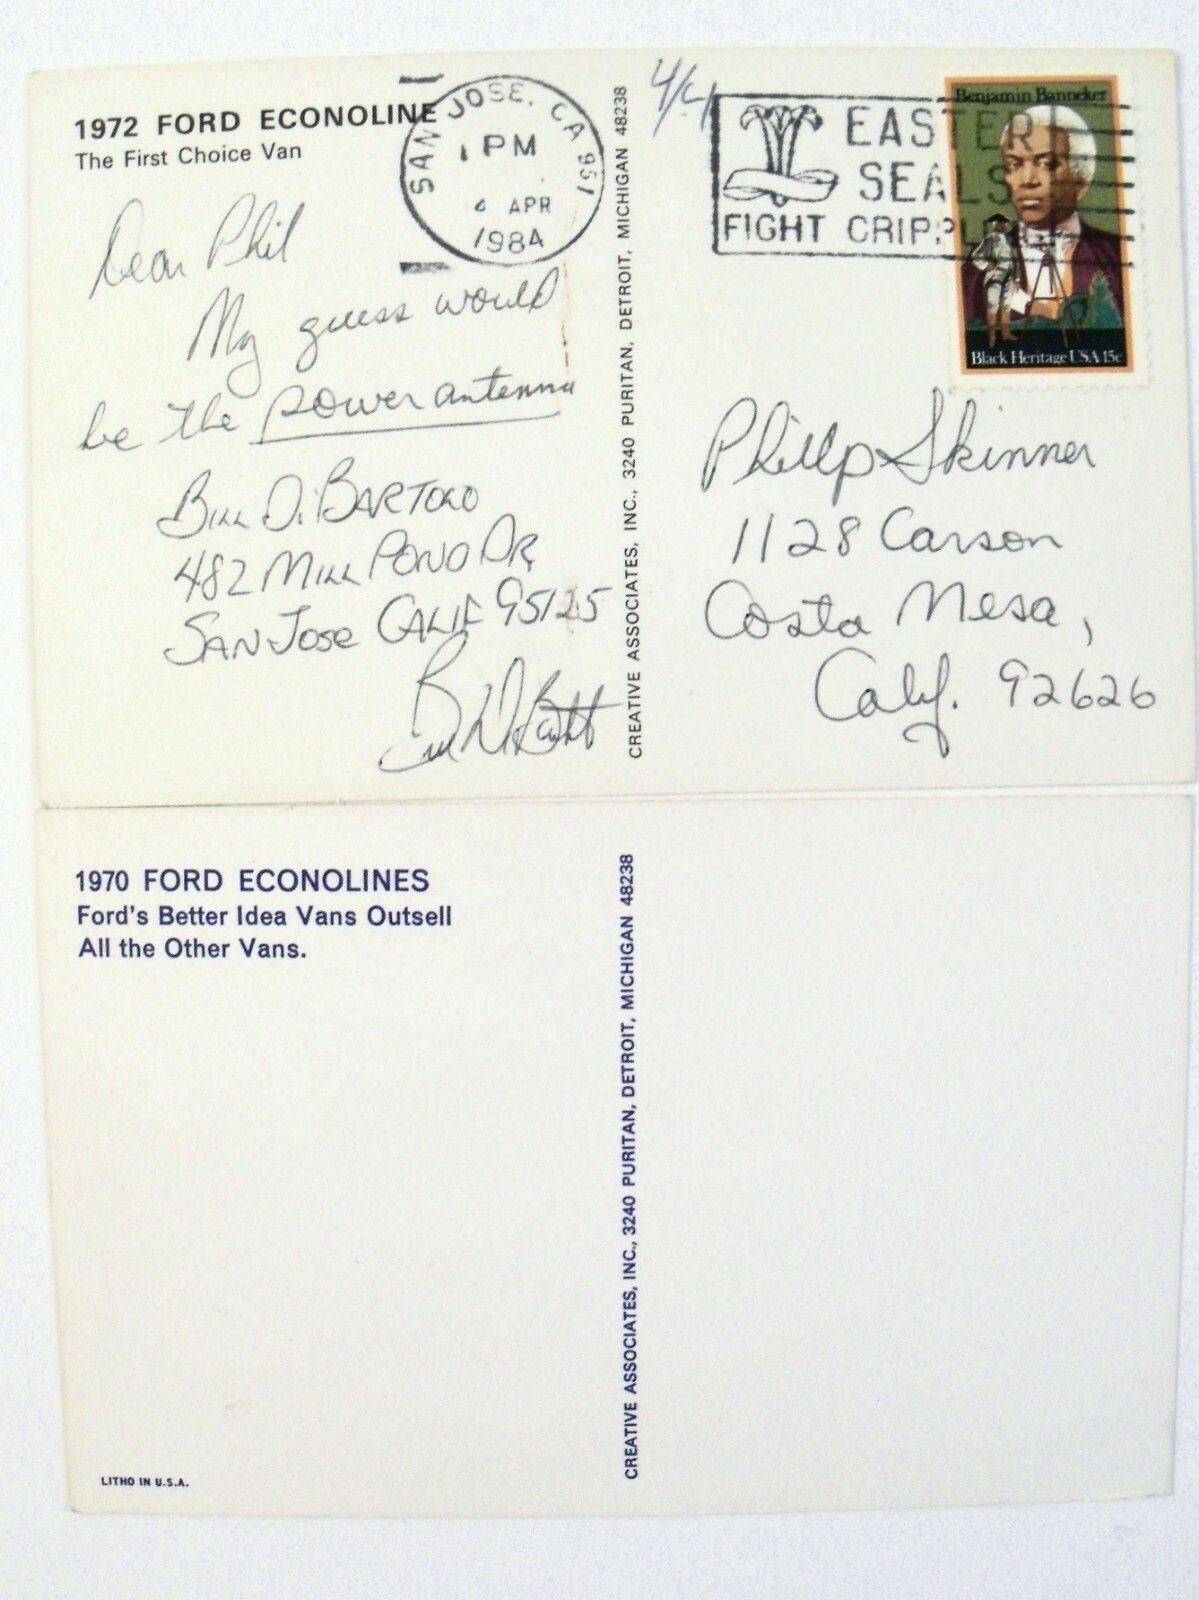 1972 FORD ECONOLINE
The First Choice Van
SAN JOSE, CA 951
PM
APR
1984
EASTER
SEALS
FIGHT CRIPPLING
Benjamin Banneker
Black Heritage USA 15c
Dear Phil
My guess would
be the power antenna
BILL DiBARTOLO
482 MILL POND DR
SAN JOSE CALIF 95125
CREATIVE ASSOCIATES, INC., 3240 PURITAN, DETROIT, MICHIGAN 48238
Phillp Skinner
1128 Carson
Costa Mesa,
Calif. 92626
1970 FORD ECONOLINES
Ford's Better Idea Vans Outsell
All the Other Vans.
CREATIVE ASSOCIATES, INC., 3240 PURITAN, DETROIT, MICHIGAN 48238
LITHO IN U.S.A.